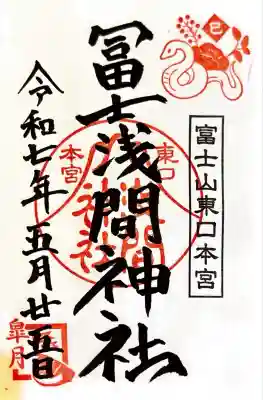 巳
富士山東口本宮
東口
冨士浅間神社
本宮
令和七年五月廿五日
皐月